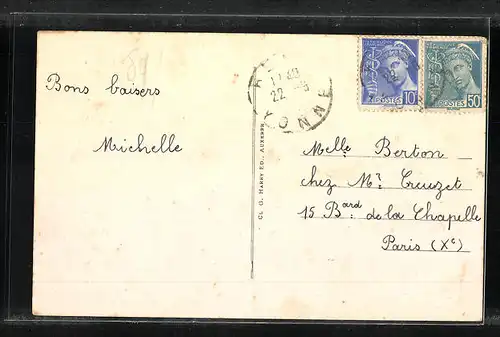 89
Bons baisers
Michelle
CL. G. HARRY ED., AUXERRE
22
YONNE
10
POSTES
50
POSTES
Melle Berton
chez Mr. Creuzet
15 Bard. de la Chapelle
Paris (Xe)